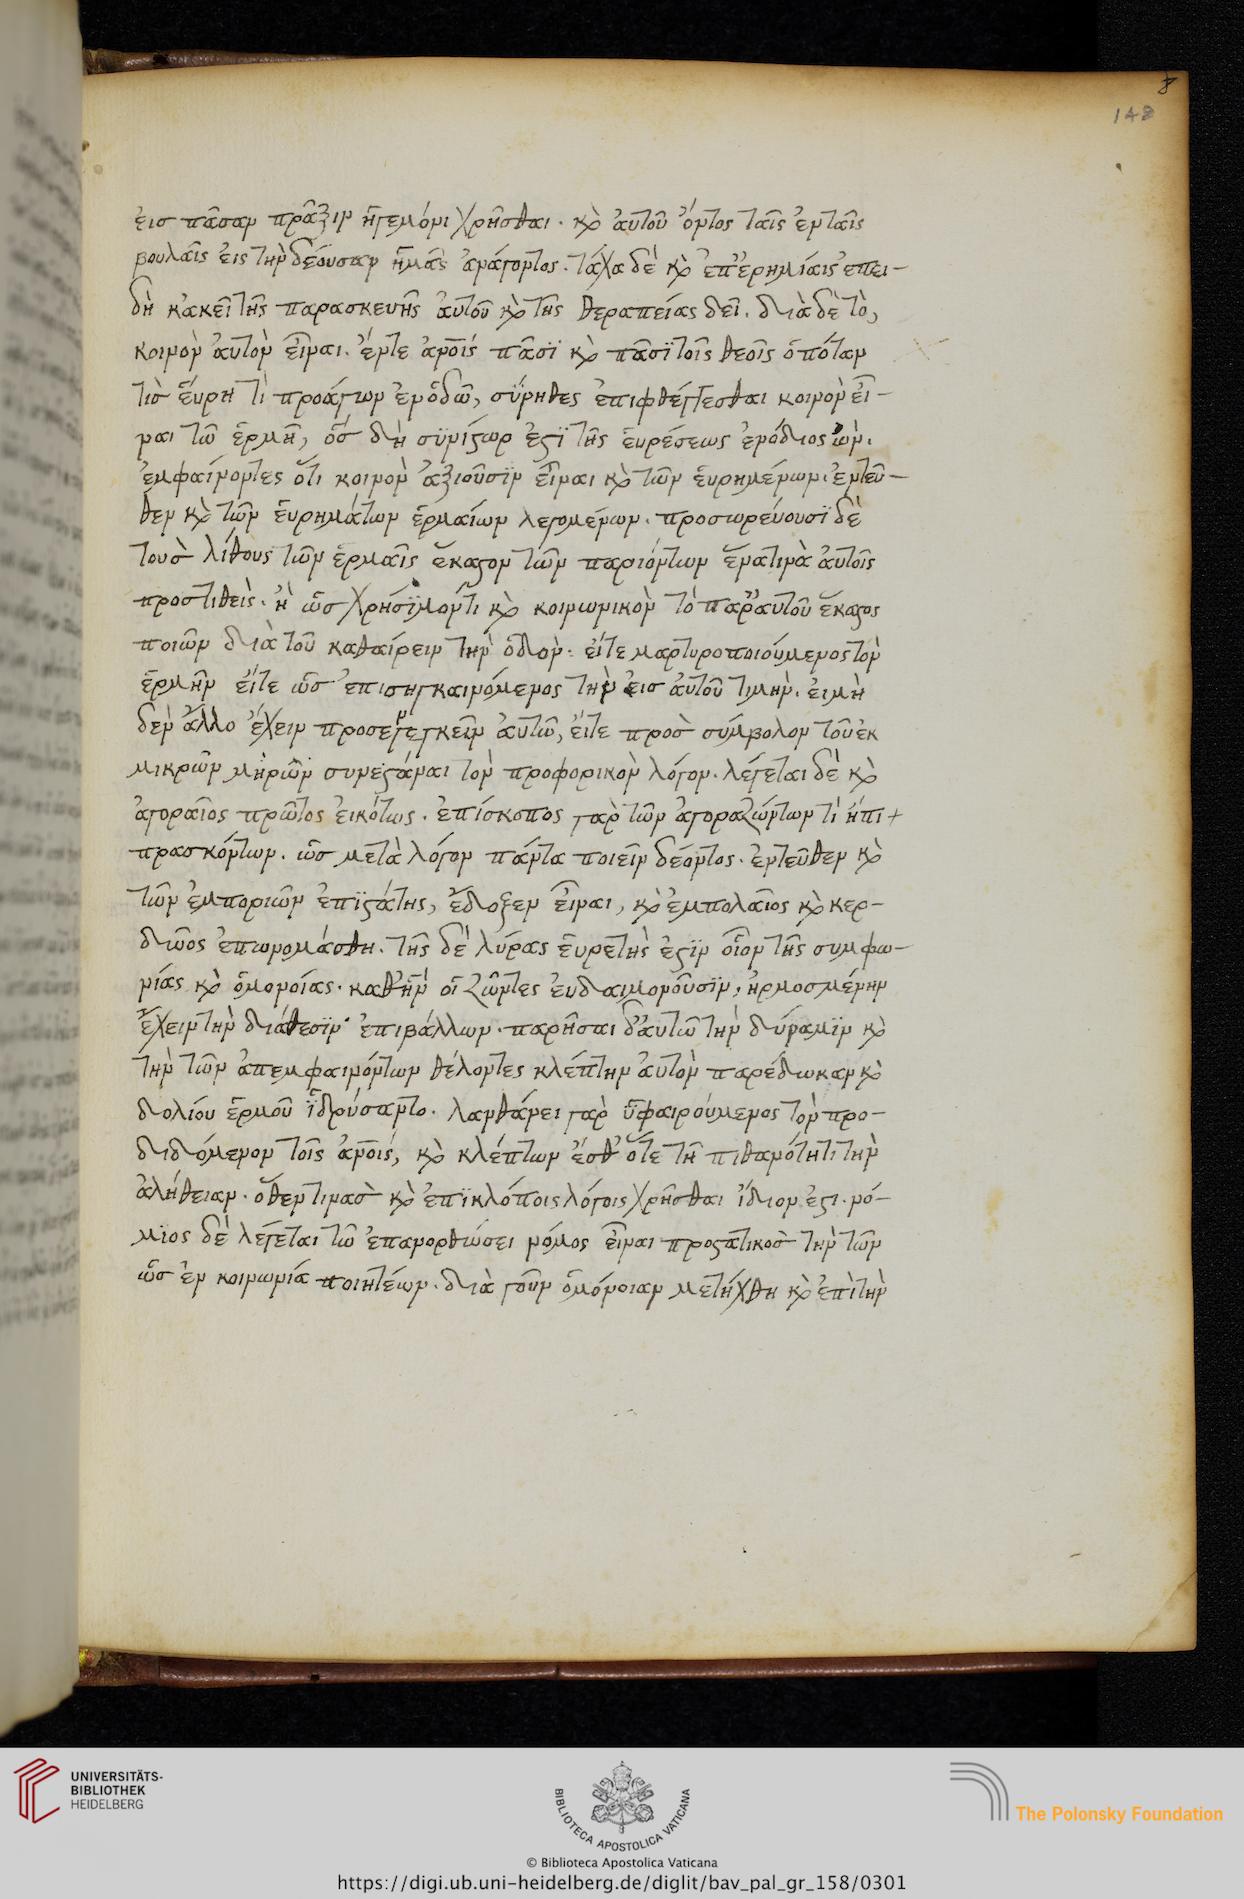 8
148
εἰσ πᾶσαν πρᾶξιν ἡγεμόνι χρῆσθαι · κὸ ἀυτοῦ ὄντος ταῖς ἐνταῖς
βουλαῖς ἐις τὴν δέουσαν ἡμᾶς ἀνάγοντος · τάχα δὲ κὸ ἐπ' ἐρημίαις ἐπει-
δὴ κἀκεῖ τῆς παρασκευῆς ἀυτοῦ κὸ τῆς θεραπείας δεῖ. διὰ δὲ τὸ,
κοινὸν ἀυτὸν εἶναι. ἔντε ἀνοῖς πᾶσϊ κὸ πᾶσϊ τοῖς θεοῖς ὁπόταν
τὶς ἕυρη τὶ προάγων ἐν ὁδῶ, σύνηθες ἐπιφθέγγεσθαι κοινὸν ἐῖ-
ναι τῶ ἑρμῆ, ὅσ δὴ συνίστωρ ἐστϊ τῆς ἑυρέσεως ἐνόδιος ὢν.
ἐμφαίνοντες ὅτι κοινὸν ἀξιοῦσϊν εἶναι κὸ τῶν ἑυρημένων · ἐντεῦ-
θεν κὸ τῶν ἑυρημάτων ἑρμαίων λεγομένων · προσωρέυουσϊ δὲ
τοὺσ λίθους τῶν ἑρμαῖς ἕκαστον τῶν παριόντων ἕνατινὰ ἀυτοῖς
προστιθεὶς · ἢ ὡσ χρήσϊμόντι κὸ κοινωνικὸν τὸ παρ' ἀυτοῦ ἕκαστος
ποιῶν διὰ τοῦ καθαίρειν τὴν ὁδὸν · εἴτε μαρτυροποιούμενος τὸν
ἑρμῆν εἴτε ὡσ ἐπισηγκαινόμενος τὴν εἰσ ἀυτοῦ τιμὴν. ἐιμὴ
δὲν ἄλλο ἔχειν προσεγεγκεῖν ἀυτῶ, ἔιτε πρὸσ σύμβολον τοῦ ἐκ
μικρῶν μὴρῶν συνεστάναι τὸν προφορικὸν λόγον · λέγεται δὲ κὸ
ἀγοραῖος πρῶτος ἐικότως · ἐπίσκοπος γὰρ τῶν ἀγοραζώντων τὶ ἤπι+
πρασκόντων · ὡσ μετὰ λόγον πάντα ποιεῖν δέοντος · ἐντεῦθεν κὸ
τῶν ἐμποριῶν ἐπϊστάτης, ἔδοξεν εἶναι, κὸ ἐμπολαῖος κὸ κερ-
διῶος ἐπωνομάσθη. τῆς δὲ λύρας ἑυρετὴς ἐστϊν οἷον τῆς συμφω-
νίας κὸ ὁμονοίας · καθ' ἣν οἱ ζῶντες ἐυδαιμονοῦσϊν, ἡρμοσμένην
ἔχειν τὴν διάθεσϊν ἐπιβάλλων · παρῆσαι δ' ἀυτῶ τὴν δύναμϊν κὸ
τὴν τῶν ἀπεμφαινόντων θέλοντες κλέπτην ἀυτὸν παρέδωκαν κὸ
δολίου ἑρμοῦ ἱδρύσαντο · λανθάνει γὰρ ὑφαιρούμενος τὸν προ-
διδόμενον τοῖς ἀνοῖς, κὸ κλέπτων ἔσθ' ὅτε τῆ πιθανότητι τὴν
ἀλήθειαν · ὅθεν τινασ κὸ ἐπϊκλόποις λόγοις χρῆσθαι ἴδιον ἐστι · νό-
μϊος δὲ λέγεται τῶ ἐπανορθώσει νόμος εἶναι προστατικὸσ τὴν τῶν
ὡσ ἐν κοινωνία ποιητέων · διὰ γοῦν ὁμόνοιαν μετήχθη κὸ ἐπὶ τὴν
UNIVERSITÄTS-
BIBLIOTHEK
HEIDELBERG
BIBLIOTECA APOSTOLICA VATICANA
The Polonsky Foundation
© Biblioteca Apostolica Vaticana
https://digi.ub.uni-heidelberg.de/diglit/bav_pal_gr_158/0301